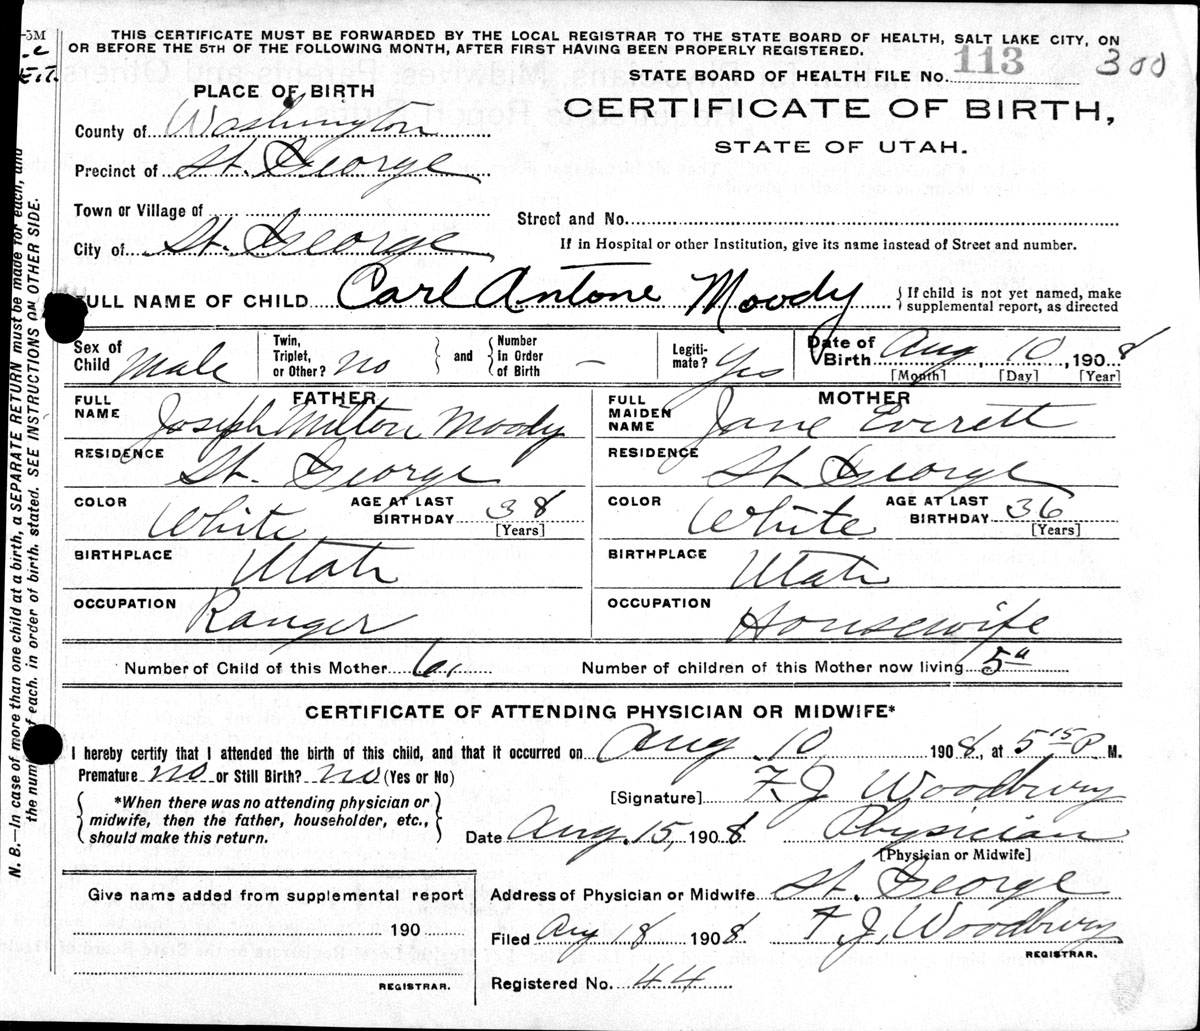 -5M
THIS CERTIFICATE MUST BE FORWARDED BY THE LOCAL REGISTRAR TO THE STATE BOARD OF HEALTH, SALT LAKE CITY, ON
OR BEFORE THE 5TH OF THE FOLLOWING MONTH, AFTER FIRST HAVING BEEN PROPERLY REGISTERED.
STATE BOARD OF HEALTH FILE No. 113 300
PLACE OF BIRTH
CERTIFICATE OF BIRTH,
STATE OF UTAH.
County of Washington
Precinct of St. George
Town or Village of
Street and No.
City of St. George
If in Hospital or other Institution, give its name instead of Street and number.
FULL NAME OF CHILD Carl Antone Moody { If child is not yet named, make
supplemental report, as directed
Sex of Child Male Twin, Triplet, or Other? no } and { Number in Order of Birth – Legiti-mate? Yes Date of Birth Aug 10, 1908
[Month] [Day] [Year]
FATHER MOTHER
FULL NAME Joseph Milton Moody FULL MAIDEN NAME Jane Everett
RESIDENCE St. George RESIDENCE St George
COLOR White AGE AT LAST BIRTHDAY 38 [Years] COLOR White AGE AT LAST BIRTHDAY 36 [Years]
BIRTHPLACE Utah BIRTHPLACE Utah
OCCUPATION Ranger OCCUPATION Housewife
Number of Child of this Mother 6. Number of children of this Mother now living 5
CERTIFICATE OF ATTENDING PHYSICIAN OR MIDWIFE*
I hereby certify that I attended the birth of this child, and that it occurred on Aug. 10 1908, at 5 15 P M.
Premature no or Still Birth? no (Yes or No)
[Signature] F. J. Woodbury
{ *When there was no attending physician or
midwife, then the father, householder, etc.,
should make this return. }
Date Aug. 15, 1908 Physician
[Physician or Midwife]
Give name added from supplemental report
190
REGISTRAR.
Address of Physician or Midwife St. George
Filed Aug 18 1908 F. J. Woodbury
REGISTRAR.
Registered No. 44
N. B.—In case of more than one child at a birth, a SEPARATE RETURN must be made for each, and
the number of each, in order of birth, stated. SEE INSTRUCTIONS ON OTHER SIDE.